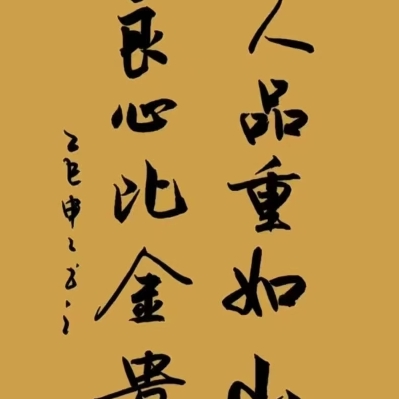 人品重如山
良心比金贵
乙巳